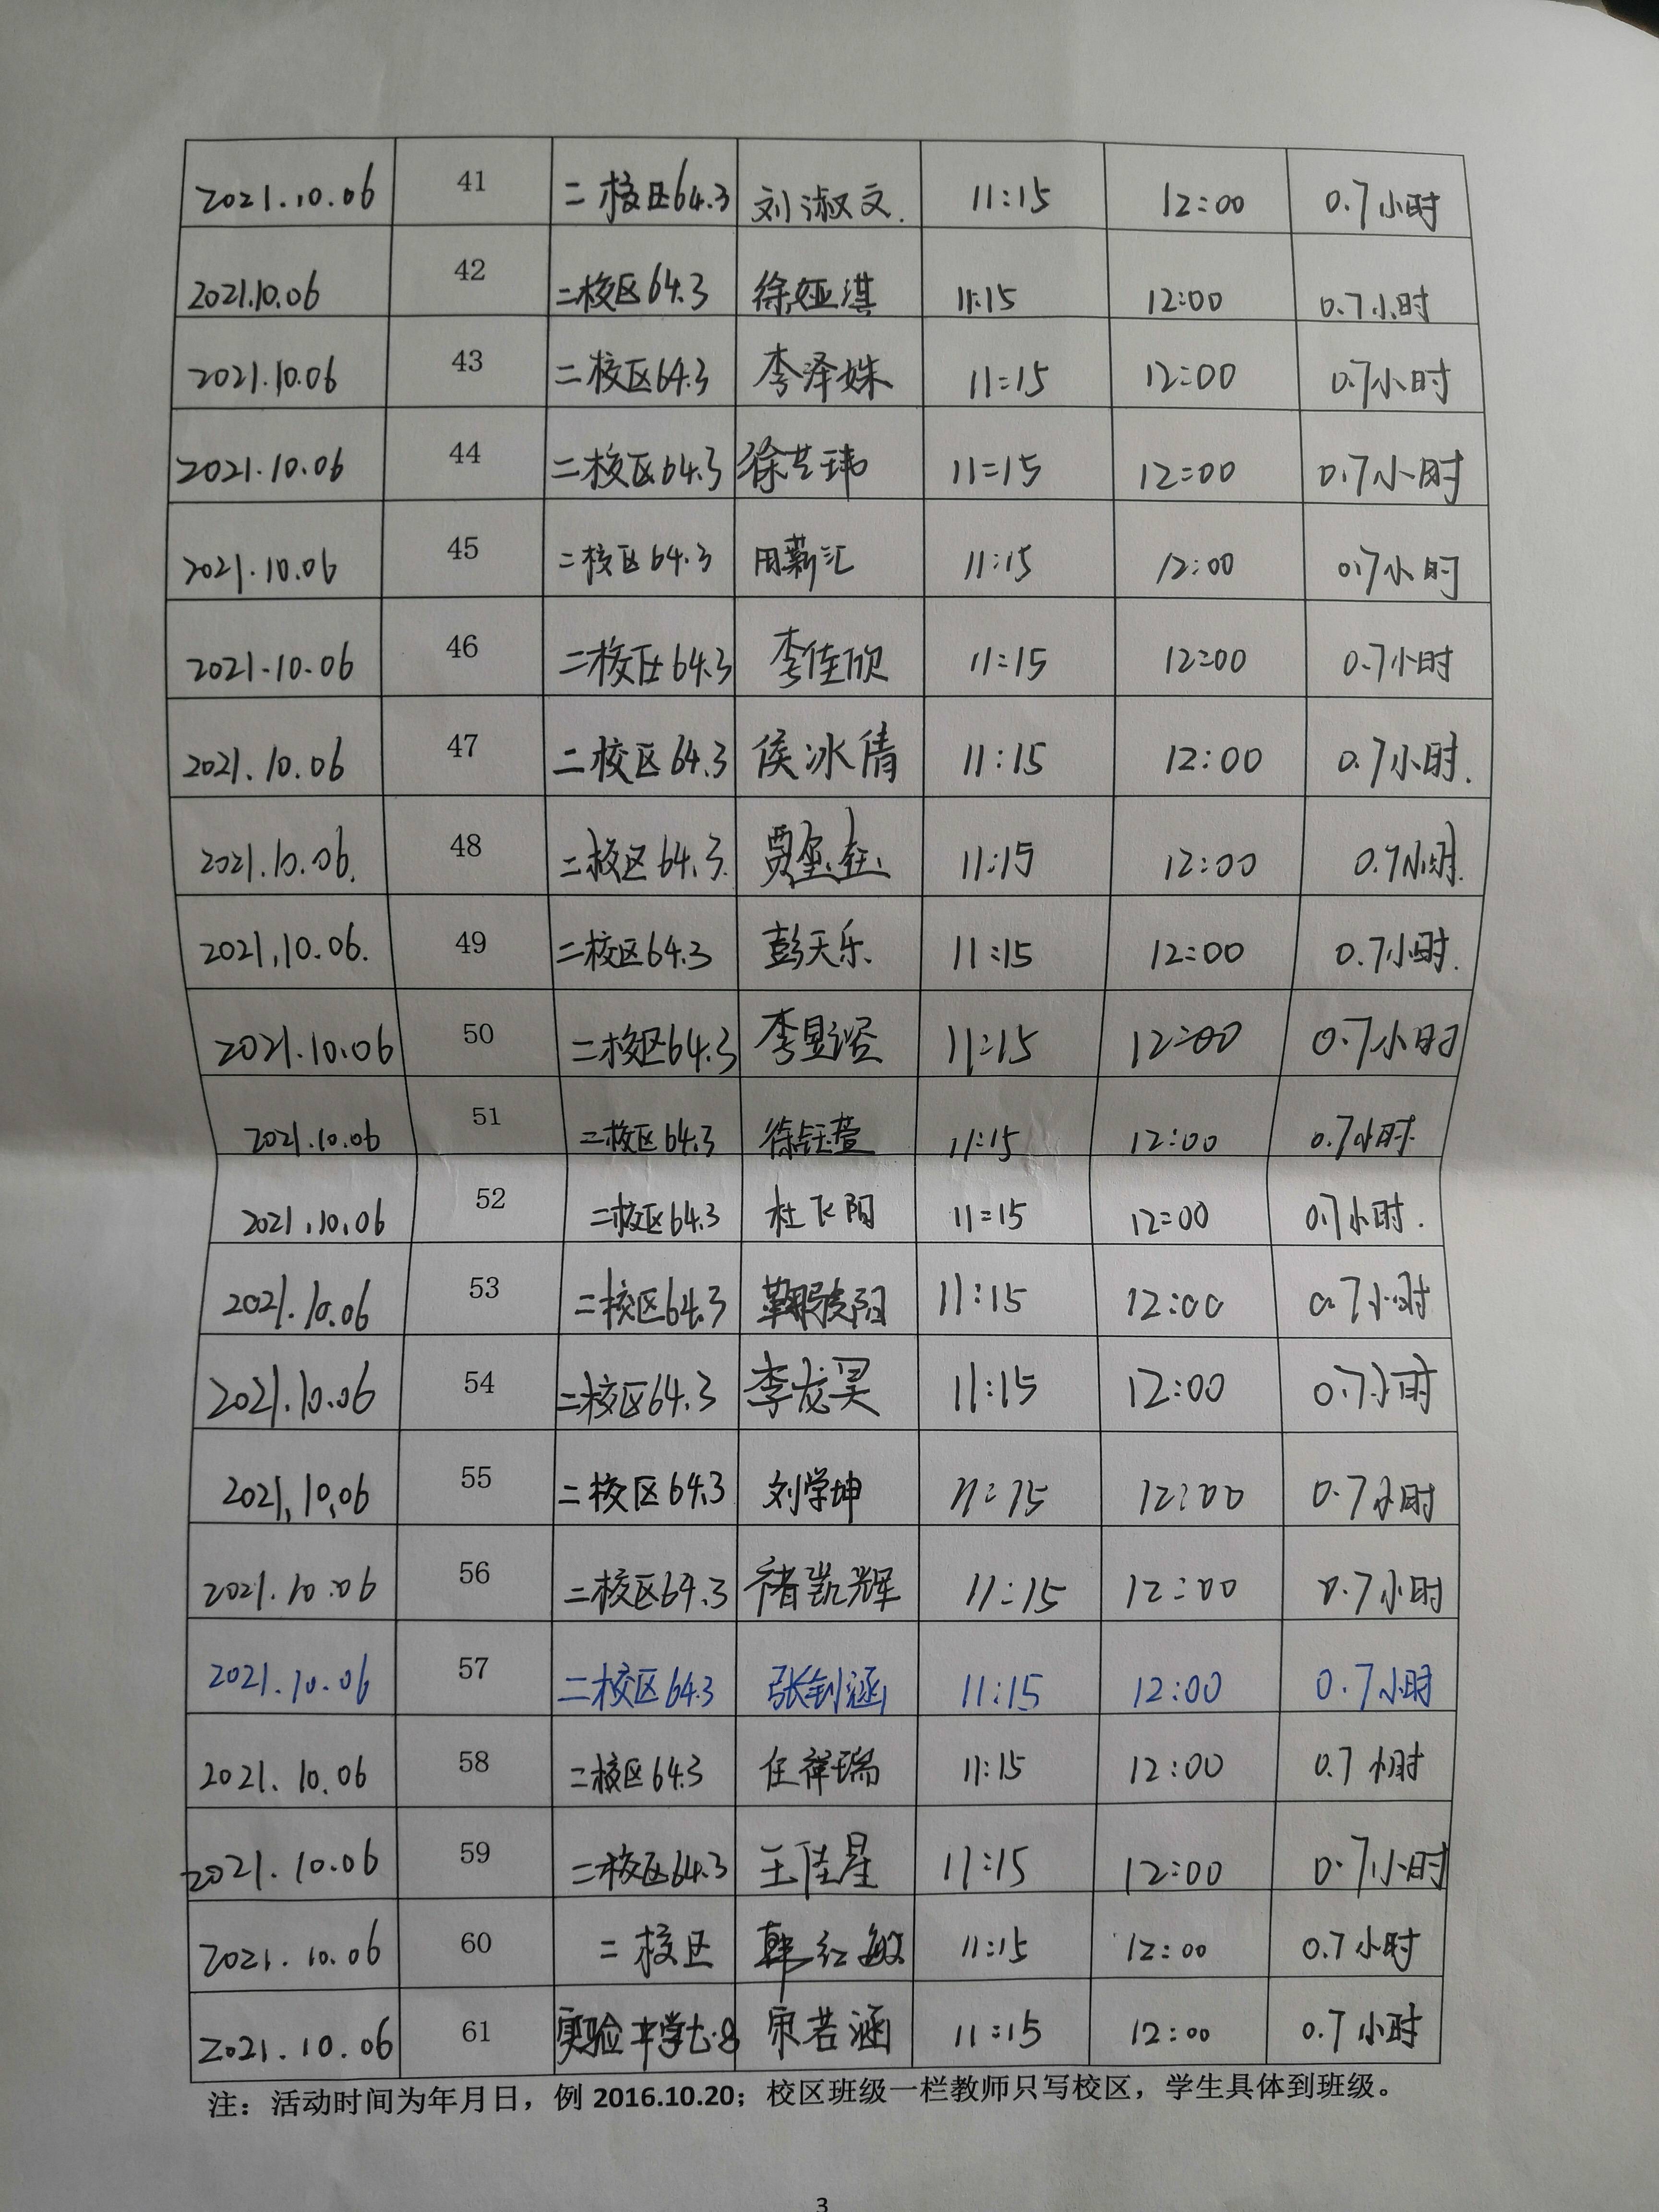 2021.10.06 41 二校区64.3 刘淑文. 11:15 12:00 0.7小时
2021.10.06 42 二校区64.3 徐娅淇 11:15 12:00 0.7小时
2021.10.06 43 二校区64.3 李泽姝 11:15 12:00 0.7小时
2021.10.06 44 二校区64.3 徐艺玮 11:15 12:00 0.7小时
2021.10.06 45 二校区64.3 周薪汇 11:15 12:00 0.7小时
2021.10.06 46 二校区64.3 李佳欣 11:15 12:00 0.7小时
2021.10.06 47 二校区64.3 侯冰倩 11:15 12:00 0.7小时.
2021.10.06. 48 二校区64.3. 11:15 12:00 0.7小时.
2021.10.06. 49 二校区64.3 彭天乐 11:15 12:00 0.7小时.
2021.10.06 50 二校区64.3 11:15 12:00 0.7小时
2021.10.06 51 二校区64.3 徐钰萱 11:15 12:00 0.7小时.
2021.10.06 52 二校区64.3 杜飞阳 11:15 12:00 0.7小时.
2021.10.06 53 二校区64.3 11:15 12:00 0.7小时
2021.10.06 54 二校区64.3 李龙昊 11:15 12:00 0.7小时
2021.10.06 55 二校区64.3 刘学坤 11:15 12:00 0.7小时
2021.10.06 56 二校区64.3 褚凯辉 11:15 12:00 0.7小时
2021.10.06 57 二校区64.3 张钊涵 11:15 12:00 0.7小时
2021.10.06 58 二校区64.3 任祥瑞 11:15 12:00 0.7小时
2021.10.06 59 二校区64.3 王佳星 11:15 12:00 0.7小时
2021.10.06 60 二校区 韩红敏 11:15 12:00 0.7小时
2021.10.06 61 实验中学七.8 宋若涵 11:15 12:00 0.7小时
注：活动时间为年月日，例 2016.10.20；校区班级一栏教师只写校区，学生具体到班级。
3